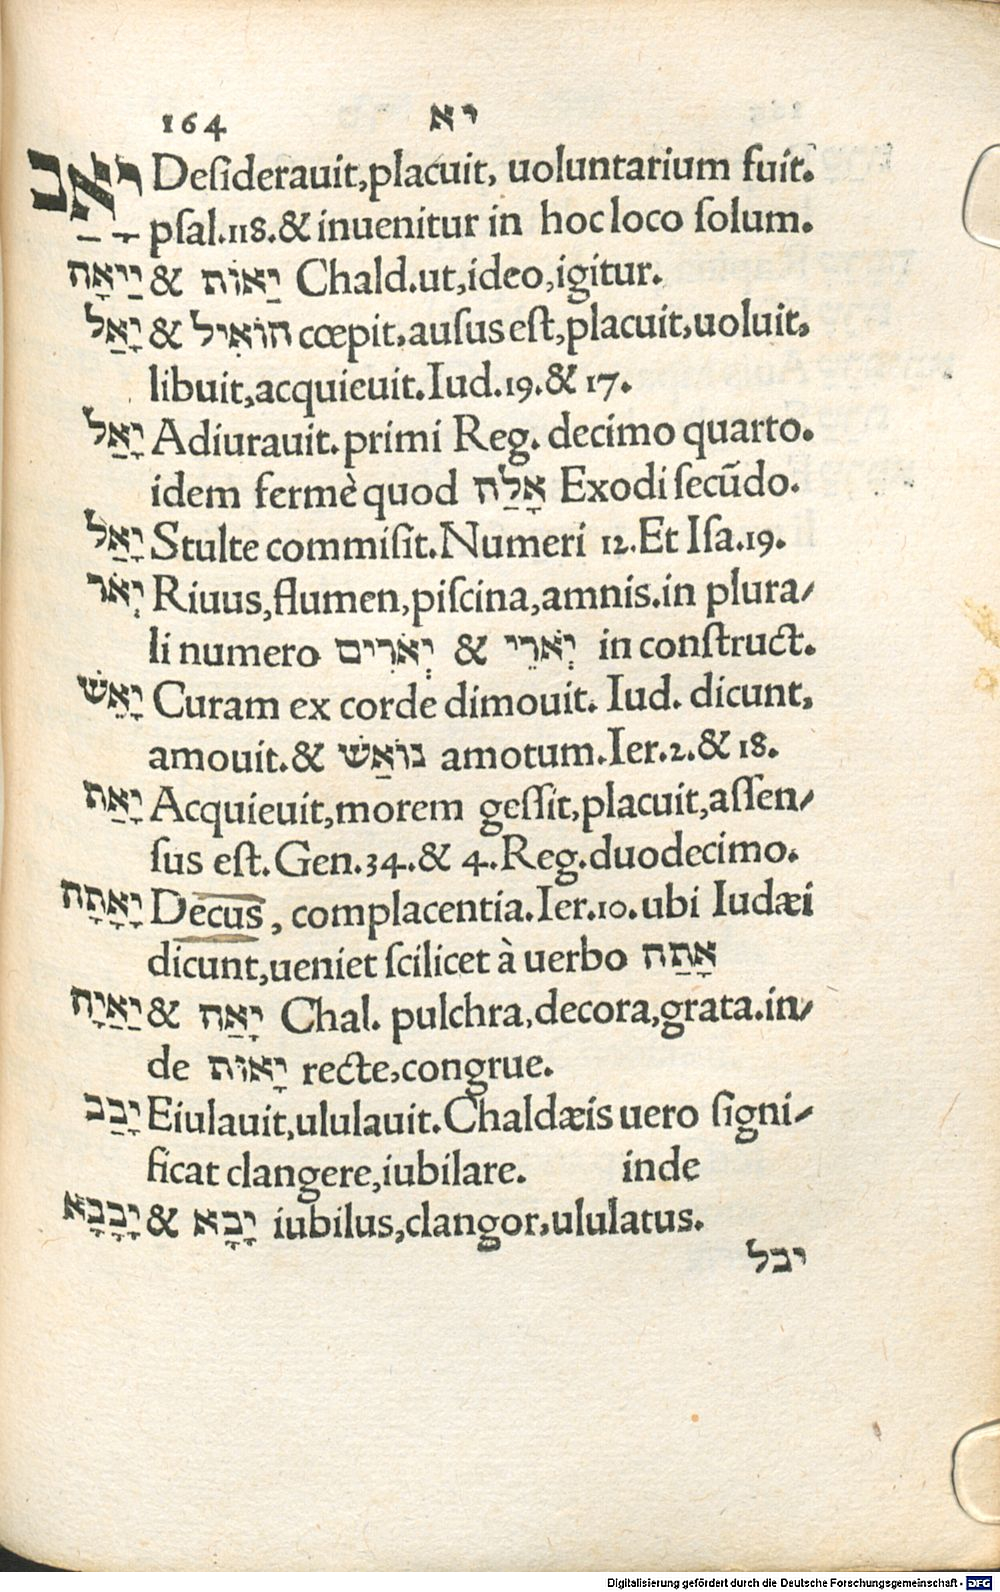 164 יא
יָאַב Desiderauit,placuit, uoluntarium fuit.
psal.118.& inuenitur in hoc loco solum.
יַיאָה & יַאוֹת Chald.ut,ideo,igitur.
יָאַל & הוֹאִיל cœpit,ausus est,placuit,uoluit,
libuit,acquieuit.Iud.19.& 17.
יָאַל Adiurauit.primi Reg. decimo quarto.
idem fermè quod אָלַה Exodi secūdo.
יָאַל Stulte commisit.Numeri 12.Et Isa.19.
יְאֹר Riuus,flumen,piscina,amnis.in plura/
li numero יְאֹרִים & יְאֹרֵי in construct.
יָאֵשׁ Curam ex corde dimouit. Iud. dicunt,
amouit.& נוֹאַשׁ amotum.Ier.2.& 18.
יָאַת Acquieuit,morem gessit,placuit,assen/
sus est.Gen.34.& 4.Reg.duodecimo.
יָאָתָה Decus, complacentia.Ier.10.ubi Iudæi
dicunt,ueniet scilicet à uerbo אָתַה
יַאַיָה & יָאַה Chal. pulchra,decora,grata.in/
de יָאוּת recte,congrue.
יָבַב Eiulauit,ululauit.Chaldæis uero signi/
ficat clangere,iubilare. inde
יָבָבָא & יָבָא iubilus,clangor,ululatus.
יבל
Digitalisierung gefördert durch die Deutsche Forschungsgemeinschaft - DFG